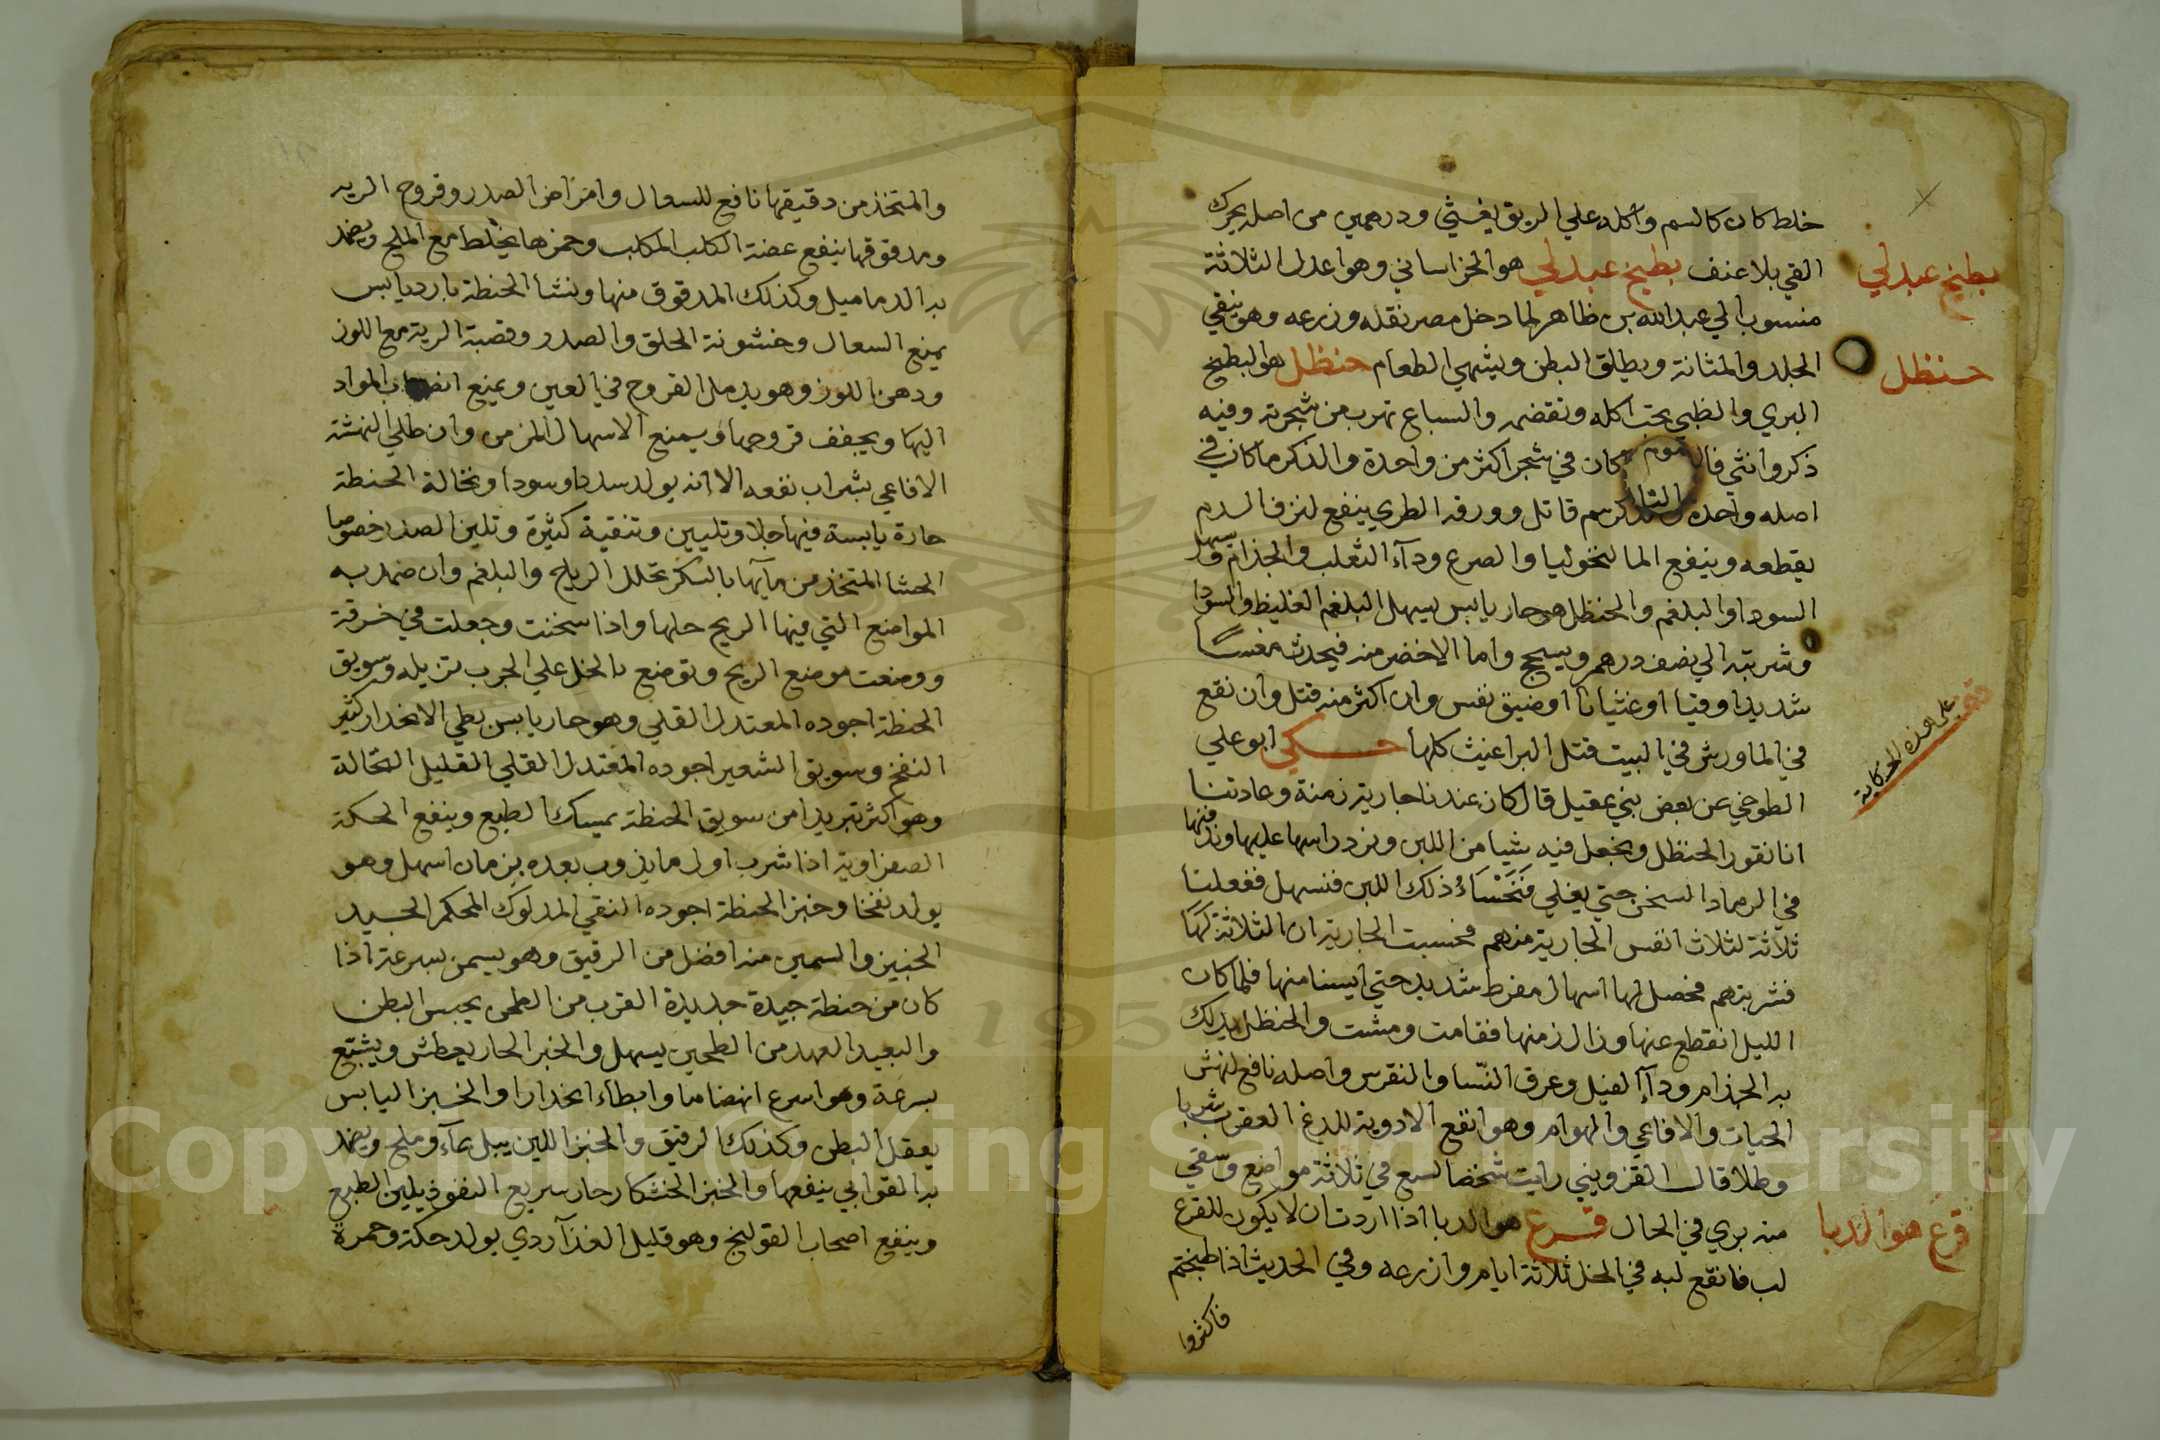 خلط كان كالسم واكله علي الريق يغثي ودرهمين من اصله يحرك
القي بلا عنف بطيخ عبدلي هو الخراساني وهو اعدل الثلاثة
بطيخ عبدلي
منسوب الي عبد الله بن ظاهر لما دخل مصر نقله وزرعه وهو ينقي
الجلد والمثانة ويطلق البطن ويشهي الطعام حنظل هو البطيخ
حنظل
البري والظبي يحب اكله وتقضمه والسباع تهرب من شجرته وفيه
ذكر وانثي فا كان في شجر اكثر من واحدة والذكر ما كان في
اصله واحدة سم قاتل وورقه الطري ينفع لنزف الدم
يقطعه وينفع المالنخوليا والصرع ودآء الثعلب والجذام ويسهل
السودا والبلغم والحنظل هو حار يابس يسهل البلغم الغليظ والسودا
وشربته الي نصف درهم ويسحج واما الاخضر منه فيحدث مغسا
شديدا وقيا او غثيانا او ضيق نفس وان اكثر منه قتل وان نقع
في الما ورش في البيت قتل البراغيث كلها حكي ابو علي
قف علي هذه الحكاية
الطوخي عن بعض بني عقيل قال كان عندنا جارية زمنة وعادتنا
انا نقور الحنظل ونجعل فيه شيا من اللبن ونرد راسها عليها وندفنها
في الرماد السخن حتي يغلي فنحساء ذلك اللبن فنسهل ففعلنا
ثلاثة لثلاث انفس الجارية منهم فحسبت الجارية ان الثلاثة لها
فشربتهم فحصل لها اسهال مفرط شديد حتي ايسنا منها فلما كان
الليل انقطع عنها وزال زمنها فقامت ومشت والحنظل يدلك
به الجذام ودآء الفيل وعرق النسا والنقرس واصله نافع لنهش
الحيات والافاعي والهوام وهو انفع الادوية للدغ العقرب شربا
وطلا قال القزويني رايت شخصا لسع في ثلاثة مواضع وسقي
منه بري في الحال قرع هو الدبا اذا اردت ان لا يكون للقرع
قرع هو الدبا
لب فانقع لبه في الخل ثلاثة ايام وازرعه وفي الحديث اذا طبختم
فاكثروا
والمتخذ من دقيقها نافع للسعال وامراض الصدر وقروح الريه
ومدقوقها ينفع عضة الكلب المكلب وخمزها يخلط مع الملح ويضمد
به الدماميل وكذلك المدقوق منها ونشا الحنطة بارد يابس
يمنع السعال وخشونة الحلق والصدر وقصبة الرية مع اللوز
ودهن اللوز وهو يدمل القروح في العين ويمنع المواد
اليها ويجفف قروحها ويمنع الاسهال المزمن وان طلي النهشة
الافاعي بشراب نفعه الا انه يولد سددا وسودا ونخالة الحنطة
حارة يابسة فيها جلا وتليين وتنقية كثيرة وتلين الصدر خصوصا
الحشا المتخذ من مآيها بالسكر تحلل الرياح والبلغم وان ضمد به
المواضع التي فيها الريح حلها واذا سخنت وجعلت في خرقة
ووضعت موضع الريح وتوضع بالخل علي الجرب تزيله وسويق
الحنطة اجوده المعتدل القلي وهو حار يابس بطي الانحدار كثير
النفخ وسويق الشعير اجوده المعتدل القلي القليل النخالة
وهو اكثر تبريدا من سويق الحنطة يمسك الطبع وينفع الحكة
الصفراوية اذا شرب اول ما يذوب بعده بزمان اسهل وهو
يولد نفخا وخبز الحنطة اجوده النقي المدلوك المحكم الجيد
الخبيز والسمين منه افضل من الرقيق وهو يسمن بسرعة اذا
كان من حنطة جيدة جديدة القرب من الطحن يحبس البطن
والبعيد العهد من الطحين يسهل والخبز الحار يعطش ويشبع
بسرعة وهو اسرع انهضاما وابطاء انحدارا والخبز اليابس
يعقل البطن وكذلك الرقيق والخبز اللين يبل بمآء وملح ويضمد
به القوابي ينفعها والخبز الخشكار حار سريع النفوذ يلين الطبع
وينفع اصحاب القولنج وهو قليل الغذآ ردي يولد حكة وحمرة
Copyright © King Saud University
195